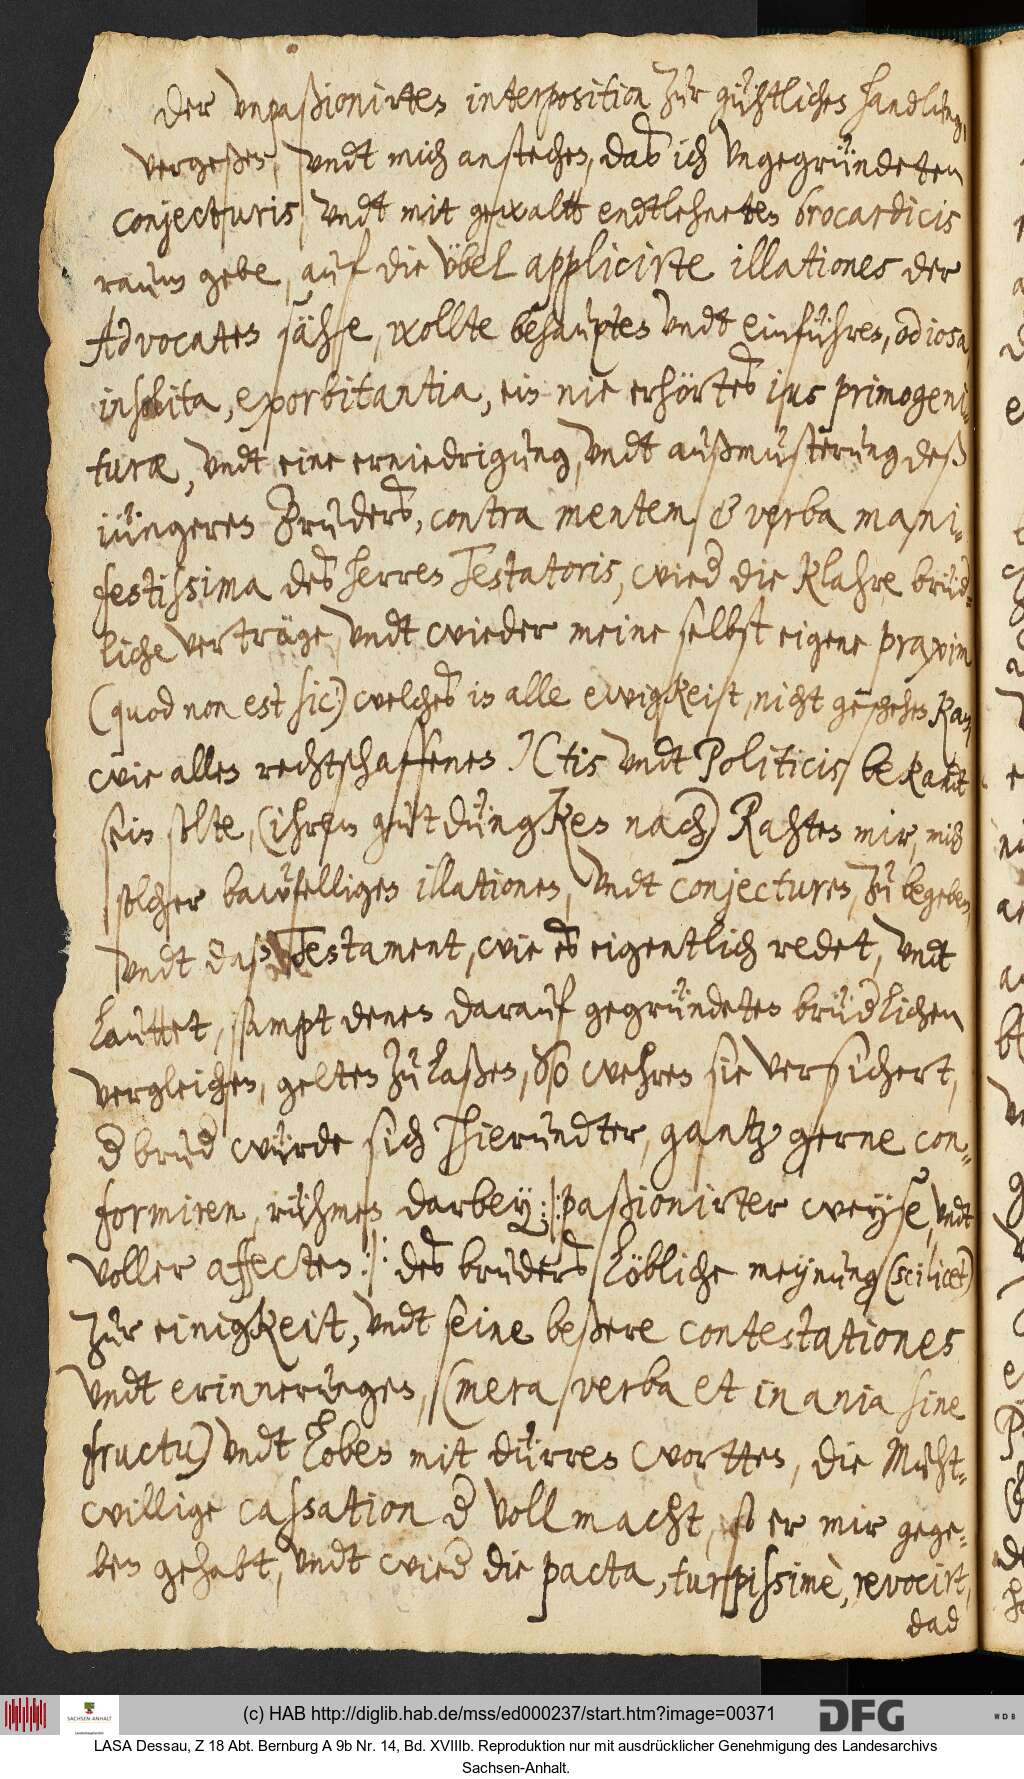 der unpaßionirten interposition zur gühtlichen handlung,
vergeßen, undt mich anstechen, daß ich ungegründeten
conjecturis, undt mit gewaltt endtlehneten brocardicis
raum gebe, auf die übel applicirte illationes der
Advocaten sähse, wollte behaupten undt einführen, odiosa,
insolita, exorbitantia, ein nie erhörtes jus primogeni-
turæ, undt eine erniedrigung, undt außmusterung deß
jüngeren Bruders, contra mentem, & verba mani-
festissima des herren Testatoris, wied die klahre brüd-
liche verträge, undt wieder meine selbst eigene praxim
(quod non est sic:) welches in alle ewigkeit, nicht geschehen kan,
wie allen rechtschaffenen JCtis undt Politicis bekandt
sein solte, (ihrem gutdüngken nach) Rahten mir, mich
solcher baufelligen illationen, undt conjecturen, zu begeben,
undt daß Testament, wie es eigentlich redet, undt
lauttet, sampt denen darauf gegründeten brüdlichen
vergleichen, gelten zu laßen, So wehren sie versichert,
d brud würde sich hierundter, gantz gerne con-
formiren, rühmen darbey :/: paßionirter weyse, undt
voller affecten :/: des bruders löbliche meynung (scilicet)
zur einigkeit, undt seine beßere contestationes
undt erinnerungen, (mera verba et inania sine
fructu) undt loben mit dürren wortten, die Muht-
willige cassation d vollmacht, so er mir gege-
ben gehabt, undt wied die pacta, turpissimè, revocirt,
dad
(c) HAB http://diglib.hab.de/mss/ed000237/start.htm?image=00371
SACHSEN-ANHALT
DFG
WDB
LASA Dessau, Z 18 Abt. Bernburg A 9b Nr. 14, Bd. XVIIIb. Reproduktion nur mit ausdrücklicher Genehmigung des Landesarchivs
Sachsen-Anhalt.